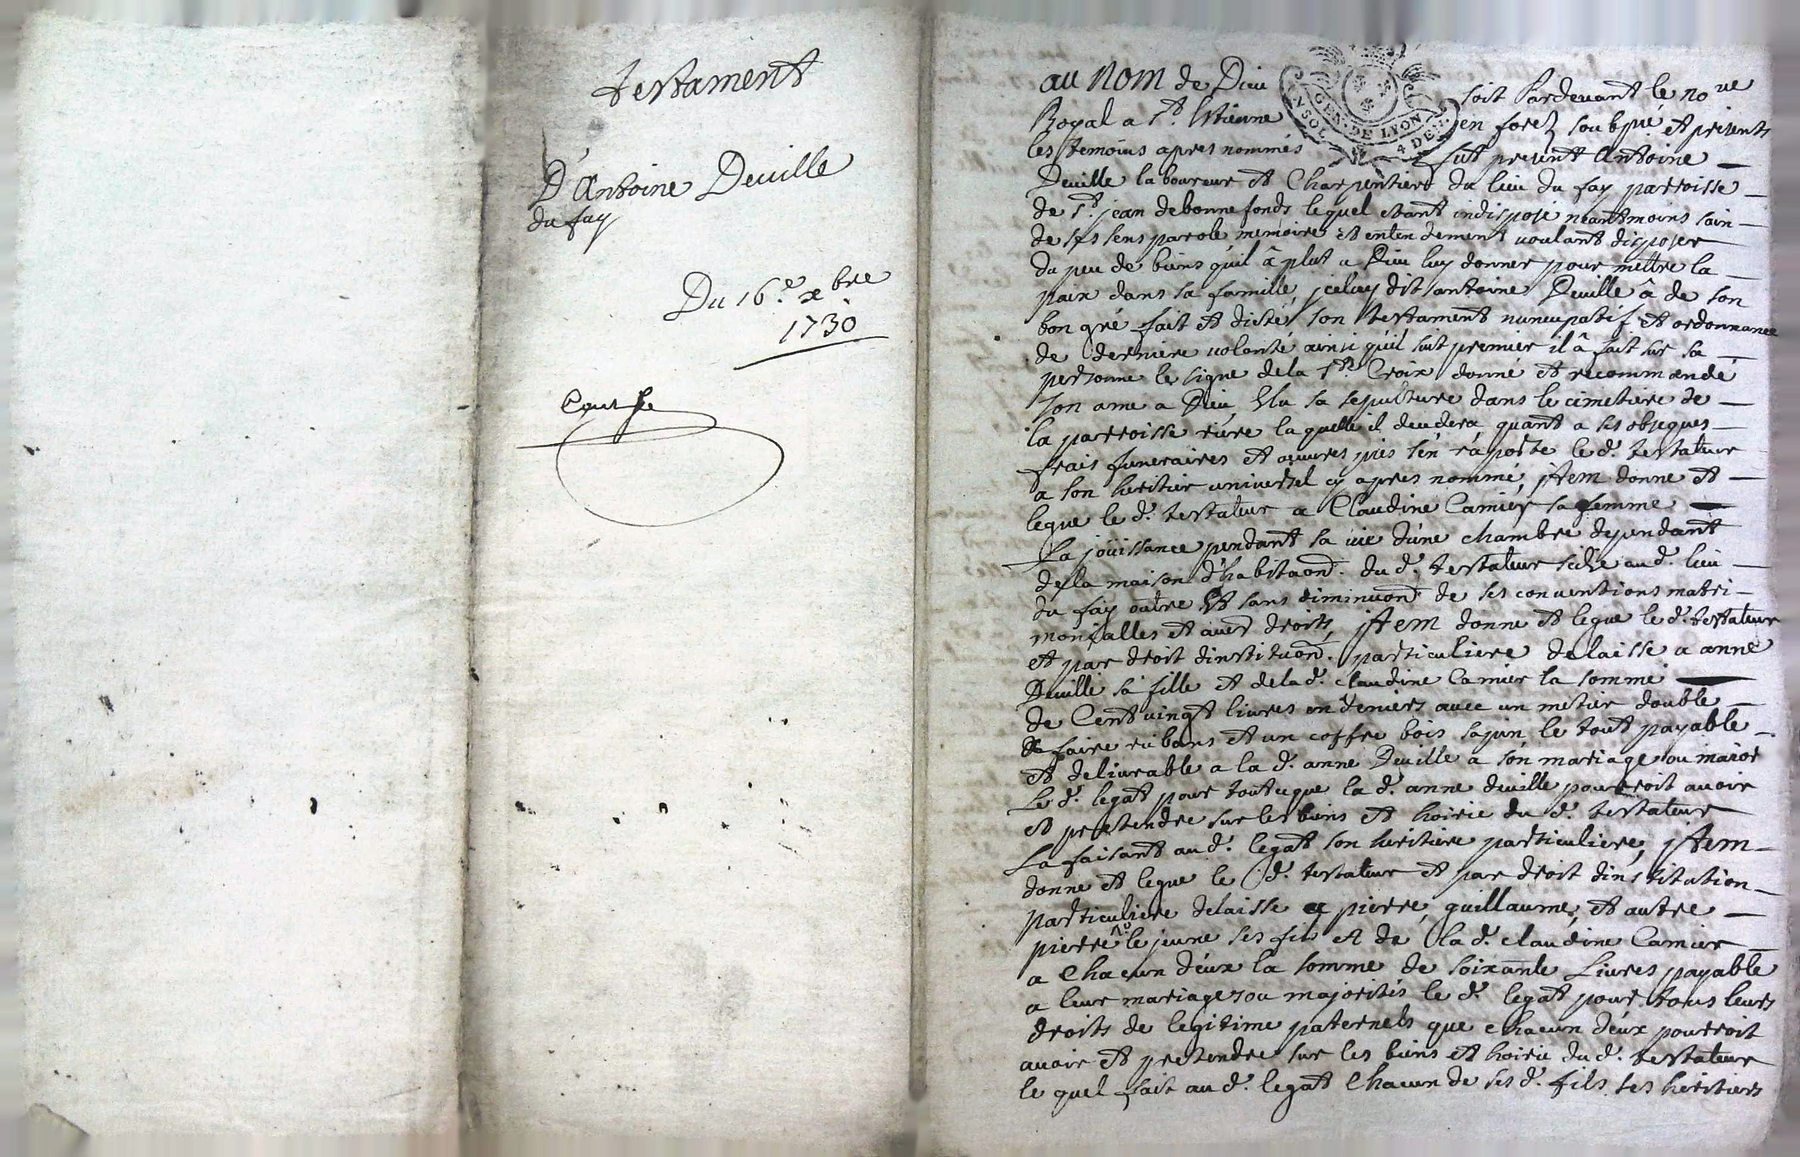 testament
D'Antoine Deville
du fay
Du 16.e xbre
1730
au nom de Dieu soit Pardevant le no.re
Royal a St. Estienne en forez soubsné et presents
les temoins apres nommés fut present Antoine
Deville laboureur et Charpentier du lieu du fay parroisse
de St. jean de bonnefonds lequel etant indisposé neantmoins sain
de ses sens parole memoire et entendement voulant disposer
du peu de biens qu'il â plut a Dieu luy donner pour mettre la
paix dans sa famille, jceluy dit antoine Deville â de son
bon gré fait et dicté son testament nuncupatif et ordonnance
de derniere volonte ainsi qu'il suit premier il â fait sur sa
personne le signe de la Ste. Croix donné et recommandé
son ame a Dieu, Elu sa sepulture dans le cimetiere de
la parroisse riere laquelle il decedera quant a ses obseques
frais funeraires et œuvres pies s'en raporte le d. testateur
a son heritier universel cy apres nommé, jtem donne et
legue le d. testateur a Claudine Camier sa femme
La joüissance pendant sa vie d'une chambre dependant
de la maison d'habitaon. du d. testateur size au d. lieu
du fay outre et sans diminuon. de ses conventions matri-
monialles et autres droits, jtem donne et legue le d. testateur
et par droit d'instituon. particuliere delaisse a anne
Deville sa fille et de la d. claudine Camier la somme
de Cent vingt livres en deniers avec un metier double
a faire rubans et un coffre bois sapin le tout payable
et delivrable a la d. anne Deville a son mariage ou maiorité
Le d. legat pour tout ce que la d. anne deville pourroit avoir
et pretendre sur les biens et hoirie du d. testateur
La faisant au d. legat son heritiere particuliere, jtem
donne et legue le d. testateur et par droit d'institution
particuliere delaisse a pierre, guillaume, et autre
pierre le jeune ses fils et de la d. claudine Camier
a Chacun d'eux la somme de soixante Livres payable
a leur mariages ou majorités le d. legat pour tous leurs
droits de legitime paternels que chacun d'eux pourroit
avoir et pretendre sur les biens et hoirie du d. testateur
le quel fait au d. legat Chacun de ses d. fils ses heritiers
GEN. DE LYON
4 DE.